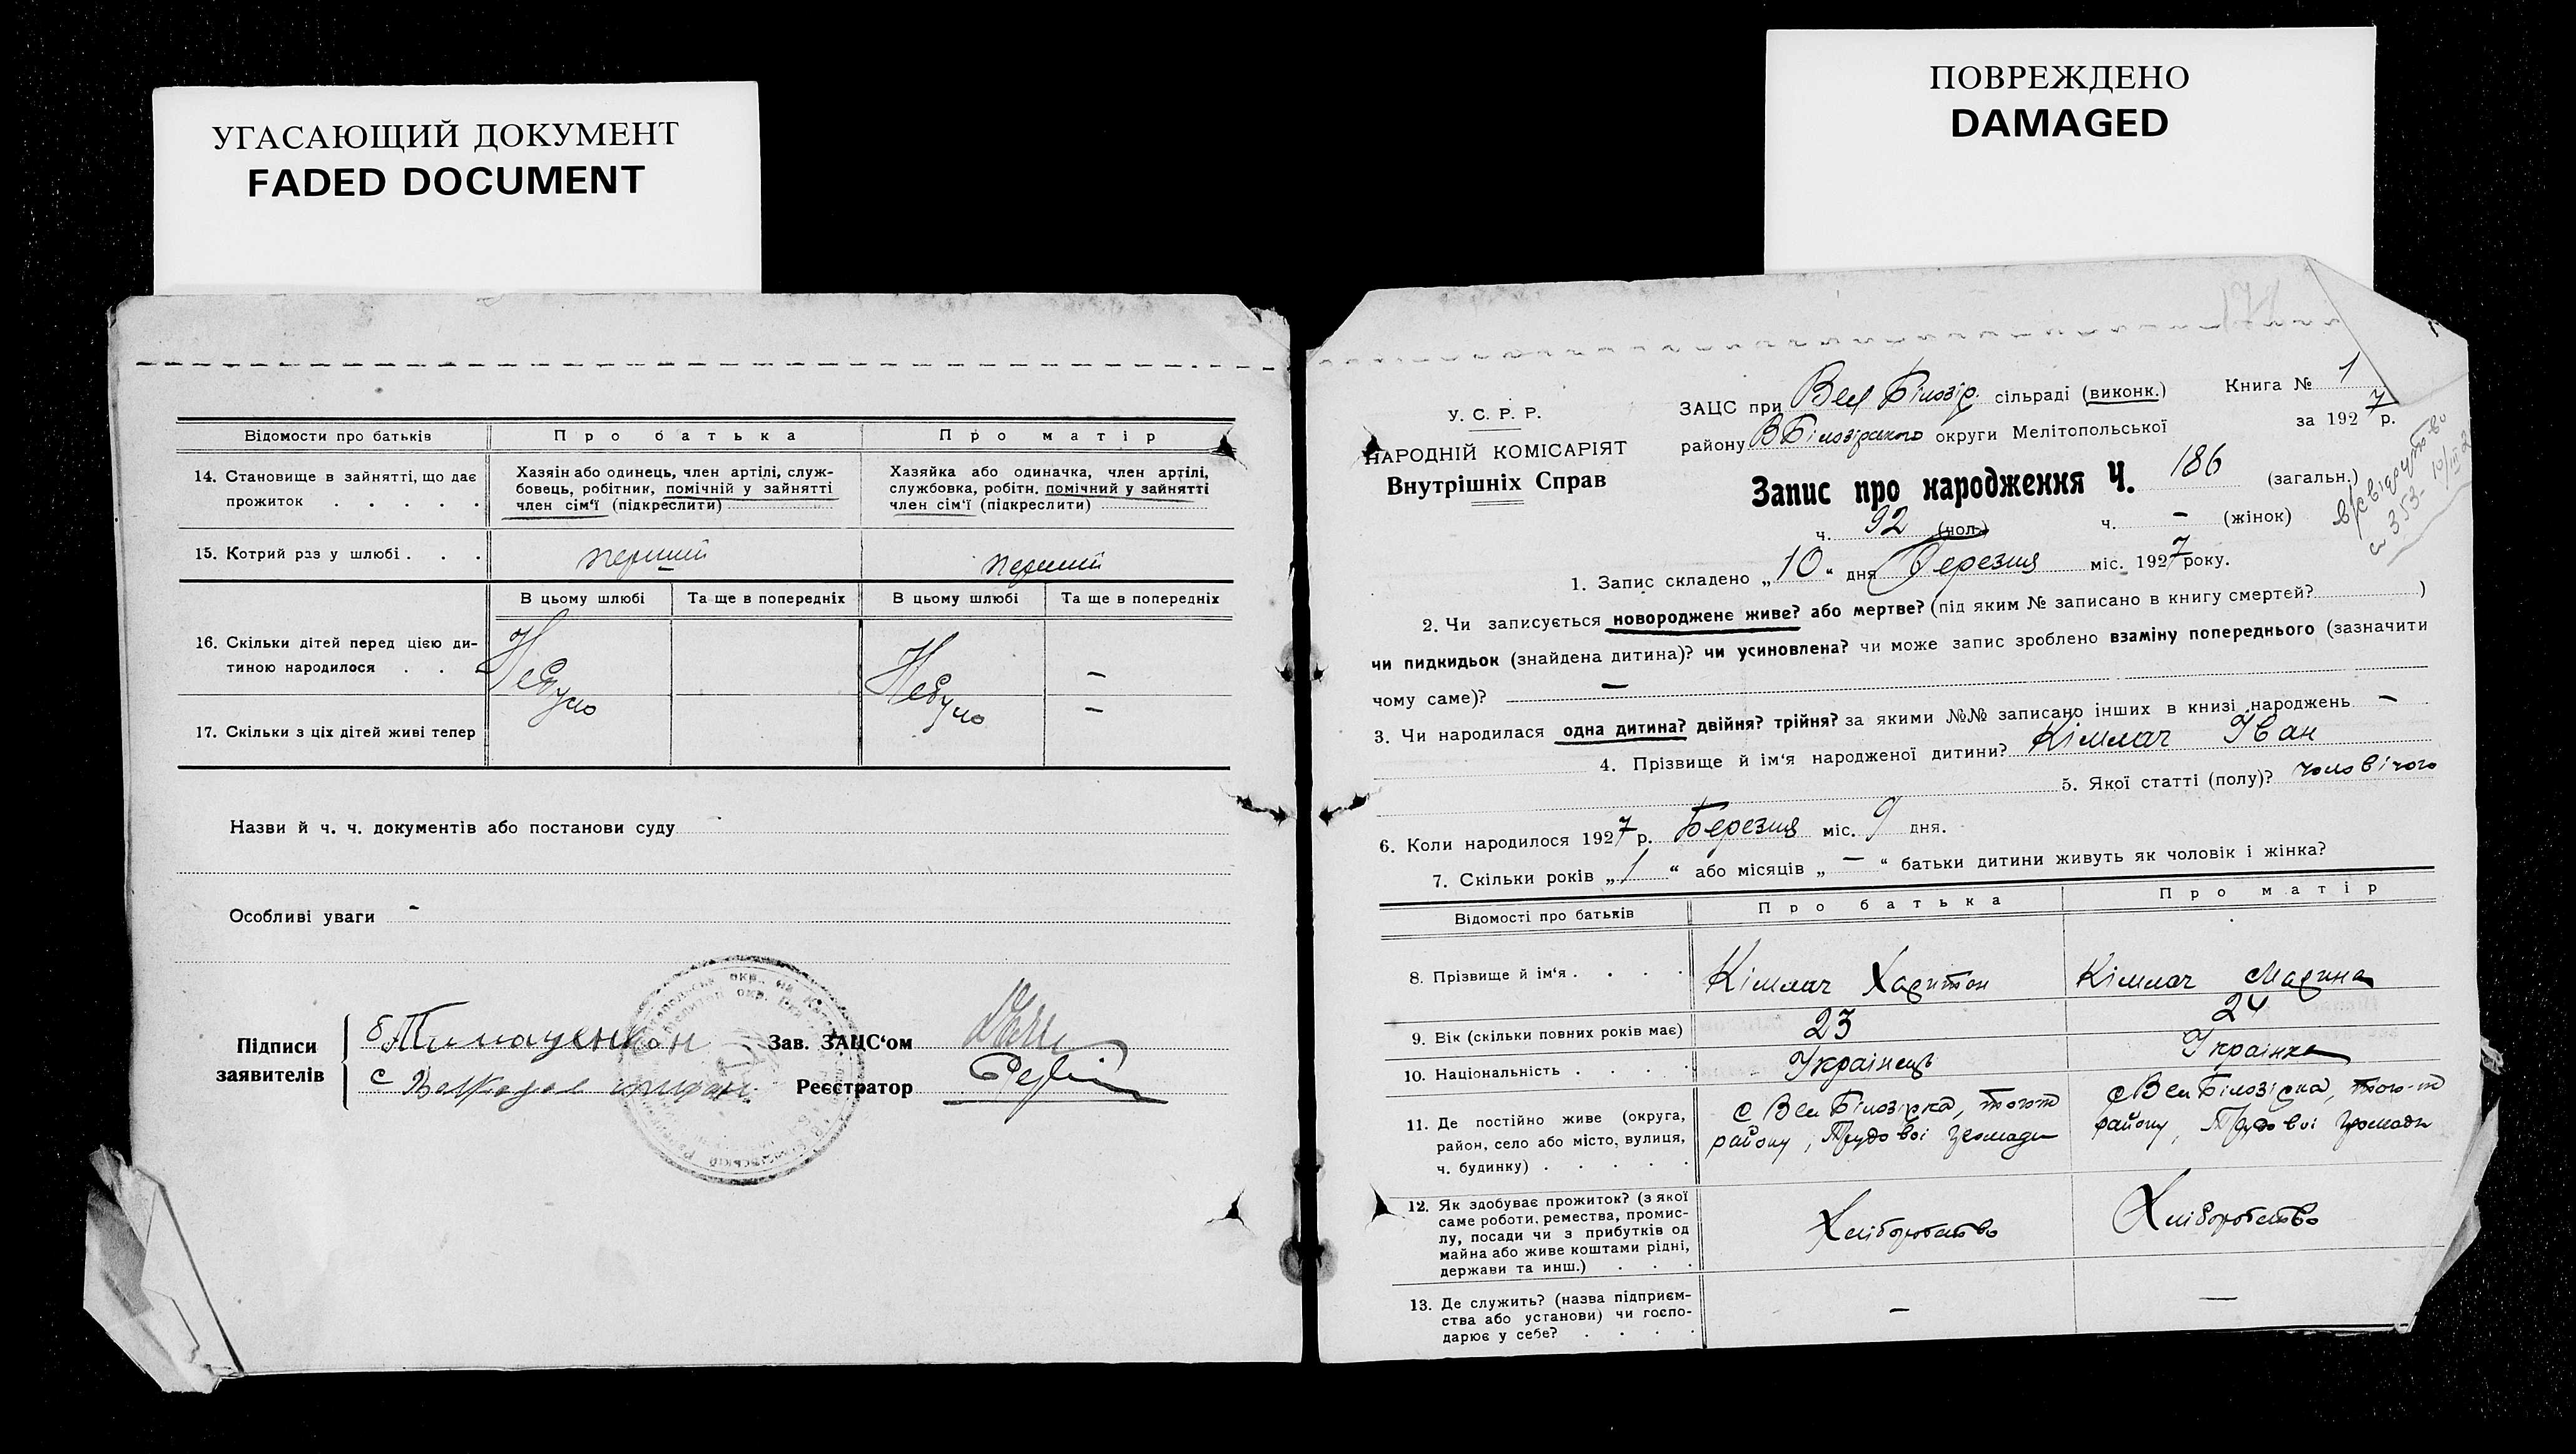 УГАСАЮЩИЙ ДОКУМЕНТ
FADED DOCUMENT
Відомости про батьків
Про батька
Про матір
14. Становище в зайнятті, що дає прожиток . . . . .
Хазяін або одинець, член артілі, служ-
бовець, робітник, помічній у зайнятті
член сім'ї (підкреслити)
Хазяйка або одиначка, член артілі,
службовка, робітн. помічний у зайнятті
член сім'ї (підкреслити)
15. Котрий раз у шлюбі . . .
перший
перший
В цьому шлюбі
Та ще в попередніх
В цьому шлюбі
Та ще в попередніх
16. Скільки дітей перед цією ди-
тиною народилося . . .
Небуло
Небуло
-
-
17. Скільки з ціх дітей живі тепер
Назви й ч. ч. документів або постанови суду
Особливі уваги -
Підписи
заявителів
Зав. ЗАЦС'ом
Реєстратор
ПОВРЕЖДЕНО
DAMAGED
У. С. Р. Р.
НАРОДНІЙ КОМІСАРІЯТ
Внутрішніх Справ
ЗАЦС при Вел Білозір. сільраді (виконк.)
району ВБілозірського округи Мелітопольської
Книга № 1
за 1927 р.
Запис про народження Ч. 186 (загальн.)
ч. 92 (чол.) ч. - (жінок)
1. Запис складено „10“ дня Березня міс. 1927 року.
2. Чи записується новороджене живе? або мертве? (під яким № записано в книгу смертей? )
чи пидкидьок (знайдена дитина)? чи усиновлена? чи може запис зроблено взаміну попереднього (зазначити
чому саме)? -
3. Чи народилася одна дитина? двійня? трійня? за якими №№ записано інших в книзі народжень -
4. Прізвище й ім'я народженої дитини? Кімлач Іван
5. Якої статті (полу)? чоловічого
6. Коли народилося 1927 р. Березня міс. 9 дня.
7. Скільки років „1“ або місяців „—“ батьки дитини живуть як чоловік і жінка?
Відомості про батьків
Про батька
Про матір
8. Прізвище й ім'я . . . .
Кімлач Харитон
Кімлач Марина
9. Вік (скільки повних років має)
23
24
10. Національність . . . .
Українець
Українка
11. Де постійно живе (округа,
район, село або місто, вулиця,
ч. будинку) . . . . .
с Вел Білозірка, того-ж
району, Трудової громади
с Вел Білозірка, того-ж
району, Трудової громади
12. Як здобуває прожиток? (з якої
саме роботи, ремества, промис-
лу, посади чи з прибутків од
майна або живе коштами рідні,
держави та инш.) . . .
Хліборобство
Хліборобство
13. Де служить? (назва підприєм-
ства або установи) чи госпо-
дарює у себе? . . . .
-
—